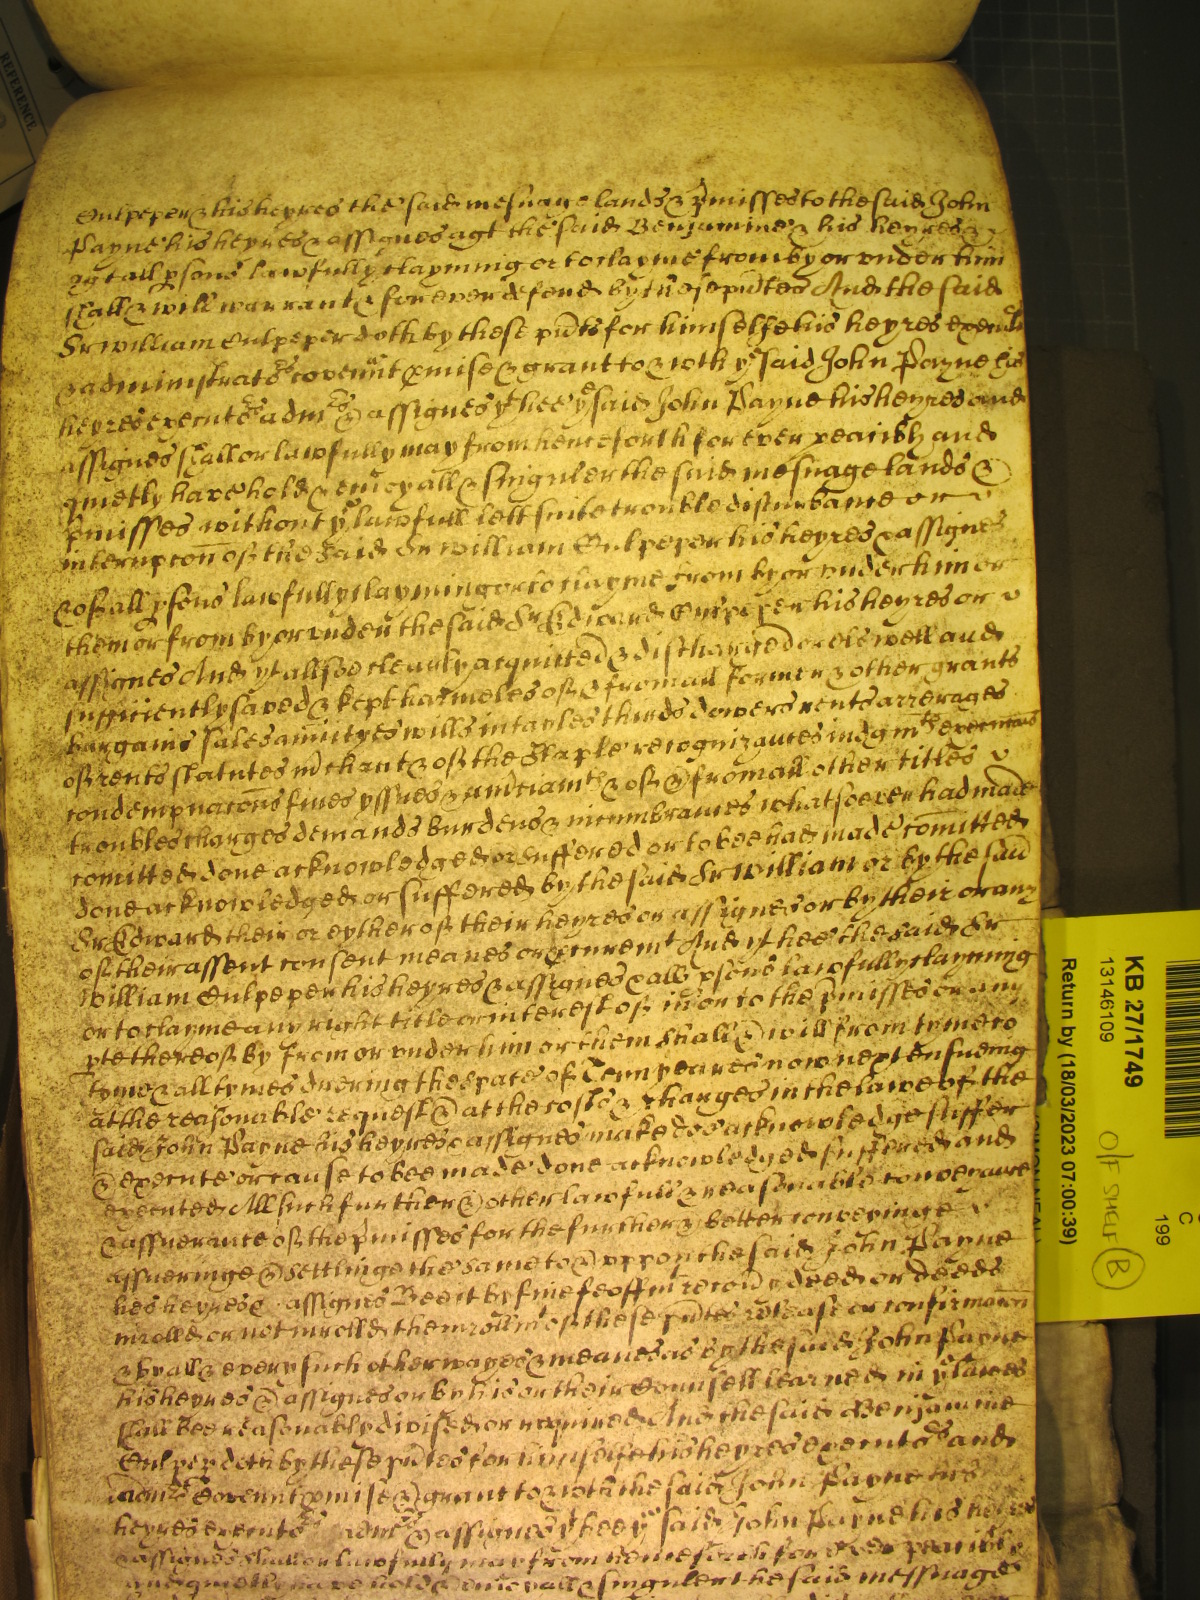 Culpeper & his heyres the said mesuage lands & pmisses to the said John
Payne his heyres & assignes agt the said Benjamine & his heyres &
agt all psons lawfully clayming or to clayme from by or under him
shall & will warrant & for ever defend by these pntes And the said
Sr William Culpeper doth by these pnts for himselfe his heyres
& administrats covennt pmise & grant to & wth ye said John Payne his
heyres executrs admrs & assignes yt hee ye said John Payne his heyres and
assignes shall or lawfully may from henceforth for ever peacibly and
quietly have hold & enioy all & singuler the said mesuage lands &
pmisses without ye lawfull lett suite trouble disturbance or
interupcon of the said Sr William Culpeper his heyres & assignes
& of all psons lawfully clayming or to clayme from by or under him or
them or from by or under the said Sr Edward Culpeper his heyres or
assignes And yt all soe clearly acquitted & discharged or els well and
sufficiently saved & kept harmeles of & from all former & other grants
bargains sales anuityes wills intayles thirds dowers rents arrerages
of rents statutes mchant & of the Staple recognizances iudgmts
condempnacons fines yssues & amciamts & of & from all other titles
troubles charges demands burdens & incumbrances whatsoever had made
comitted done acknowledged or suffered or to bee had made comitted
done acknowledged or suffered by the said Sr William or by the said
Sr Edward their or eyther of their heyres or assignes or by their or any
of their assent consent meanes or pcuremt And yt hee the said Sr
William Culpeper his heyres & assignes & all psons lawfully clayming
or to clayme any right title or interest of in or to the pmisses or any
pte thereof by from or under him or them shall & will from tyme to
tyme & all tymes duering the space of Tenn yeares now next ensueing
at the reasonable request & at the costs & charges in the lawe of the
said John Payne his heyres & assignes make doe acknowledge suffer
& execute or cause to bee made done acknowledged suffered and
executed All such further & other lawfull & reasonable conveyance
& assuerance of the pmisses for the further & better conveyinge
assueringe & settlinge the same to & uppon the said John Payne
his heyres & assignes Bee it by fine feoffmt recovy deed or deeds
inrolld or not inrolld the inrollmt of these pntes release or confirmacon
& by all & every such other wayes & meanes as by the said John Payne
his heyres & assignes or by his or their Counsell learned in ye lawes
shall bee reasonably divised or required And the said Benjamine
Culpeper doth by these pntes for himselfe his heyres executrs and
admrs Covennt pmise & grant to & wth the said John Payne his
heyres executrs admrs & assignes yt hee ye said John Payne his heyres
& assignes shall or lawfully may from henceforth for ever peacibly
and quietly have hold & enioy all & singuler the said messuage
REFERENCE
KB 27/1749
13146109
Return by (18/03/2023 07:00:39)
O/F SHELF B
C
199